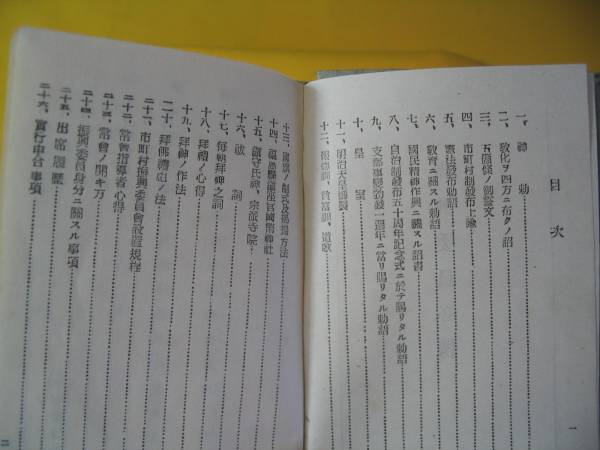 目次
一、神勅
二、教化ヲ四方ニ布クノ詔
三、五箇條ノ御誓文
四、市町村制發布上諭
五、憲法發布勅語
六、教育ニ關スル勅語
七、國民精神作興ニ關スル詔書
八、自治制發布五十周年記念式ニ於テ賜リタル勅語
九、支那事變勃發一週年ニ當リ賜リタル勅語
十、皇室
十一、明治天皇御製
十二、報徳訓、貧富訓、道歌
一
十三、國旗ノ制式及掲揚方法
十四、福島縣鎭座官國幣神社
十五、鎭守氏神、宗派寺院
十六、祓詞
十七、毎朝拜神之詞
十八、拜禮ノ心得
十九、拜神ノ作法
二十、拜佛禮ノ法
二十一、市町村振興委員會設置規程
二十二、常會指導者心得
二十三、常會ノ開キ方
二十四、振興委員身分ニ關スル事項
二十五、出席履歴
二十六、實行申合事項
二